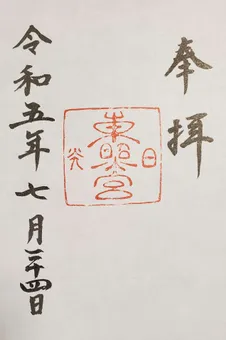 奉拝
日光
東照宮
令和五年七月二十四日